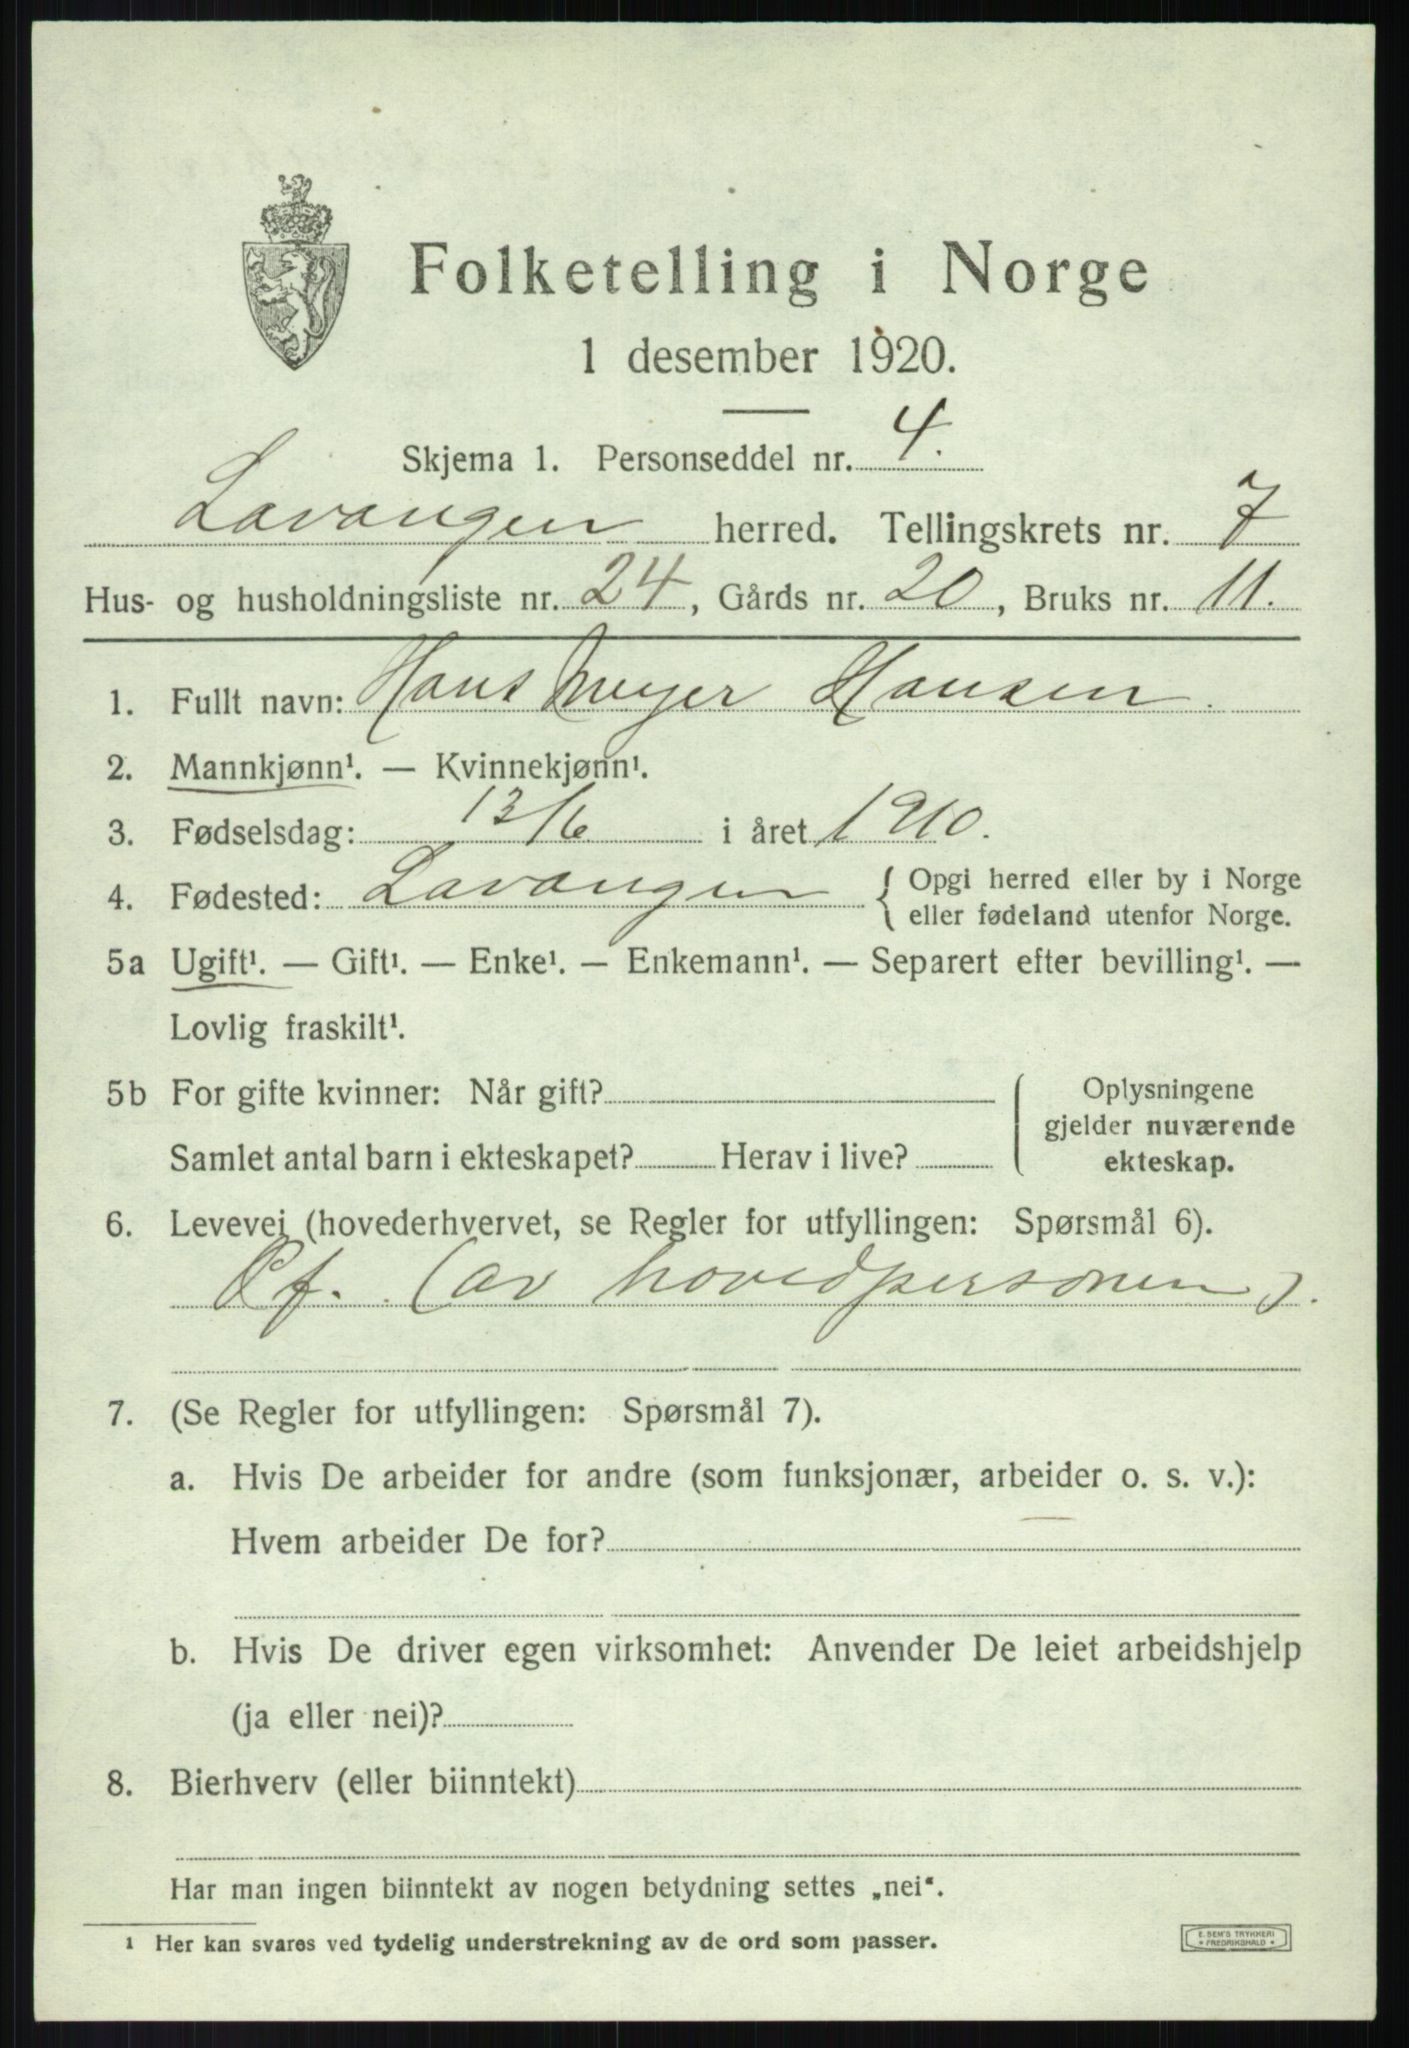 Folketelling i Norge
1 desember 1920.
Skjema 1. Personseddel nr. 4.
Lavangen herred. Tellingskrets nr. 7
Hus- og husholdningsliste nr. 24, Gårds nr. 20, Bruks nr. 11.
1. Fullt navn: Hans Meyer Hansen.
2. Mannkjønn¹. — Kvinnekjønn¹.
3. Fødselsdag: 13/6 i året 1910.
4. Fødested: Lavangen { Opgi herred eller by i Norge
eller fødeland utenfor Norge.
5a Ugift¹. — Gift¹. — Enke¹. — Enkemann¹. — Separert efter bevilling¹. —
Lovlig fraskilt¹.
5b For gifte kvinner: Når gift? ( Oplysningene
gjelder nuværende
Samlet antal barn i ekteskapet? Herav i live? ekteskap.
6. Levevei (hovederhvervet, se Regler for utfyllingen: Spørsmål 6).
f. (av hovedpersonen).
7. (Se Regler for utfyllingen: Spørsmål 7).
a. Hvis De arbeider for andre (som funksjonær, arbeider o. s. v.):
Hvem arbeider De for?
b. Hvis De driver egen virksomhet: Anvender De leiet arbeidshjelp
(ja eller nei)?
8. Bierhverv (eller biinntekt)
Har man ingen biinntekt av nogen betydning settes „nei“.
¹ Her kan svares ved tydelig understrekning av de ord som passer.
E. SEM'S TRYKKERI
* FREDRIKSHALD *